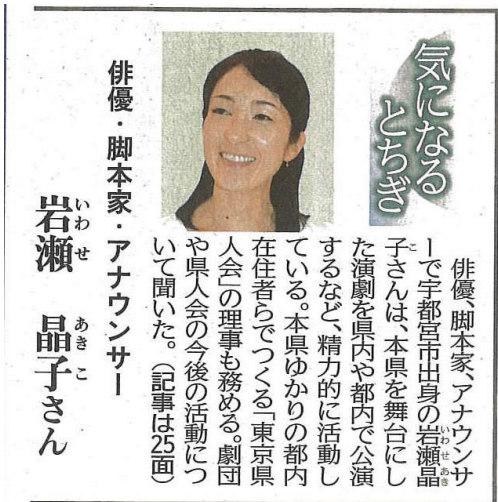 気になる
とちぎ
俳優、脚本家、アナウンサ
ーで宇都宮市出身の岩瀬晶
いわせあき
子さんは、本県を舞台にし
こ
た演劇を県内や都内で公演
するなど、精力的に活動し
ている。本県ゆかりの都内
在住者らでつくる「東京県
人会」の理事も務める。劇団
や県人会の今後の活動につ
いて聞いた。(記事は25面)
俳優・脚本家・アナウンサー
岩瀬 晶子さん
いわせ あきこ